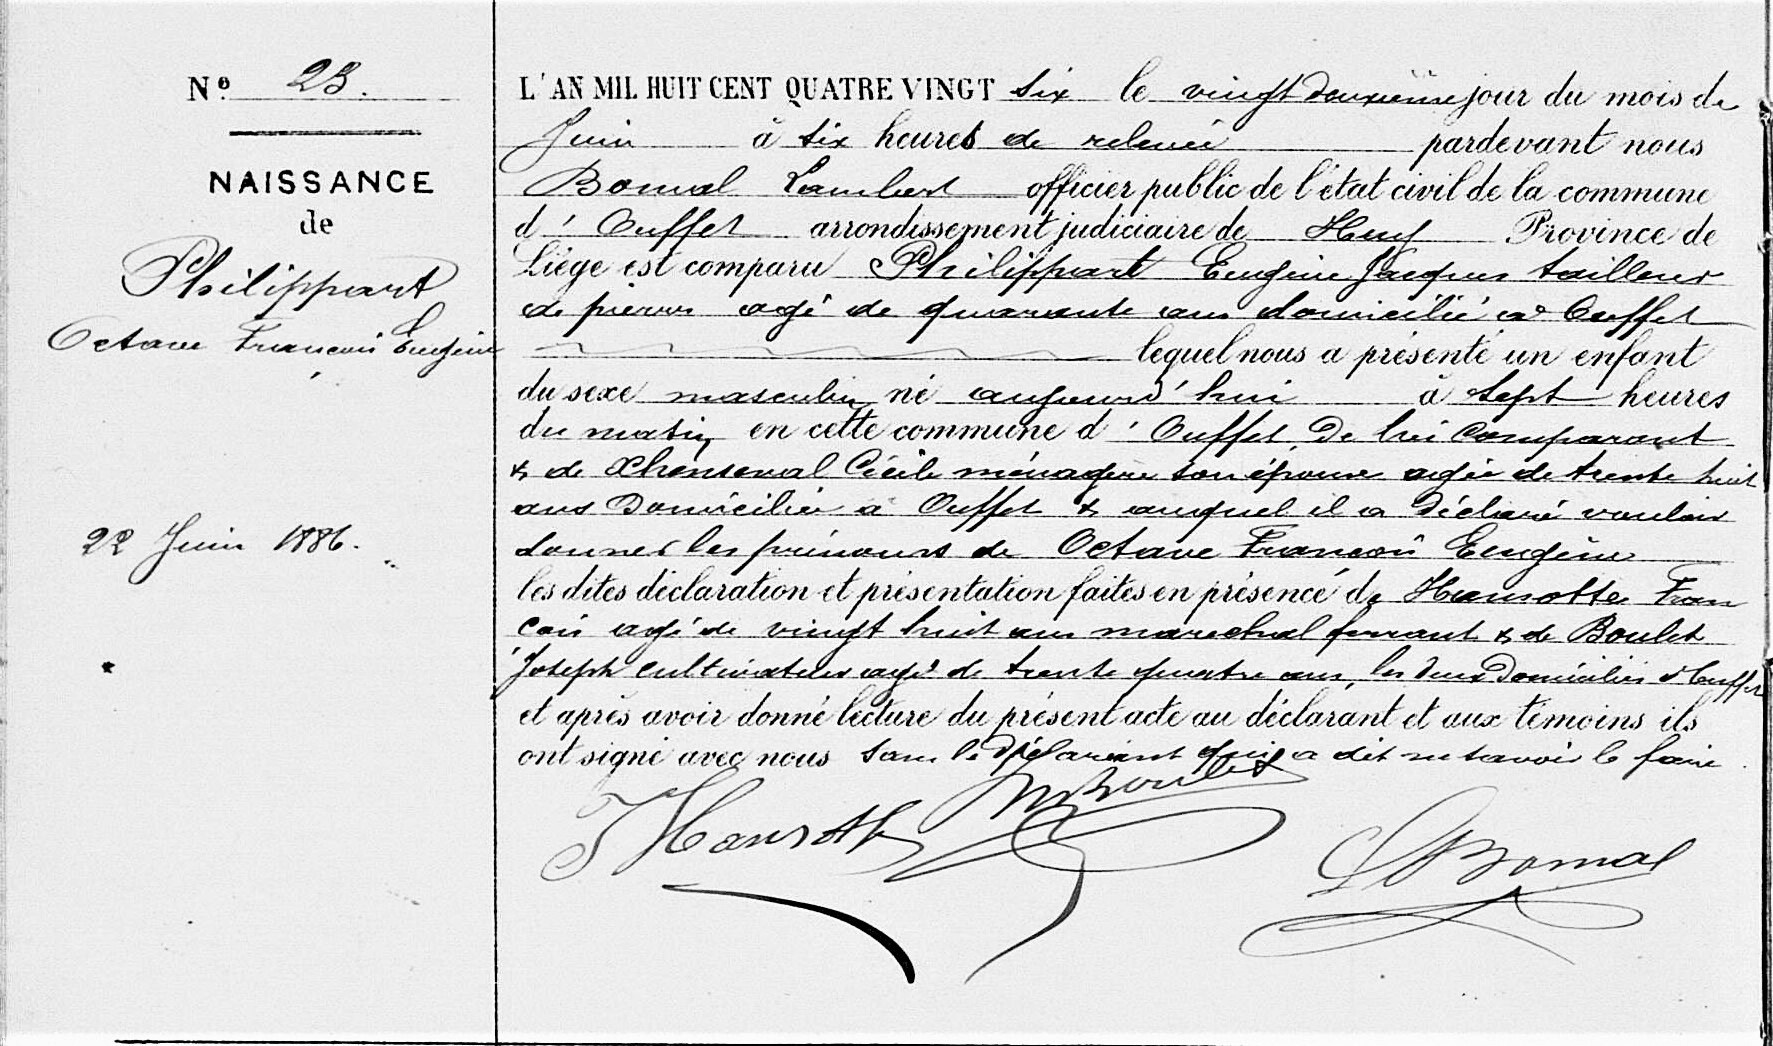 Nº 23.
NAISSANCE
de
Philippart
Octave François Eugène
22 Juin 1886.
L'AN MIL HUIT CENT QUATRE VINGT six le vingt deuxième jour du mois de
Juin à six heures de relevée pardevant nous
Bomal Lambert officier public de l'état civil de la commune
d'Ouffet arrondissement judiciaire de Huy Province de
Liège est comparu Philippart Eugène Jacques tailleur
de pierres agé de quarante ans domicilié à Ouffet
lequel nous a présenté un enfant
du sexe masculin né aujourd'hui à sept heures
du matin en cette commune d'Ouffet, De lui comparant
& de Xhenseval Cécile ménagère son épouse agée de trente huit
ans Domiciliée à Ouffet & auquel il a Déclaré vouloir
donner les prénoms de Octave François Eugène
les dites déclaration et présentation faites en présence de Hansotte Fran
cois agé de vingt huit ans marechal ferrant & de Boulet
Joseph cultivateur agé de trente quatre ans, les deux Domiciliés d'Ouffet
et après avoir donné lecture du présent acte au déclarant et aux témoins ils
ont signé avec nous sauf le Déclarant qui a dit ne savoir le faire.
Boulet
F Hansotte
L Bomal